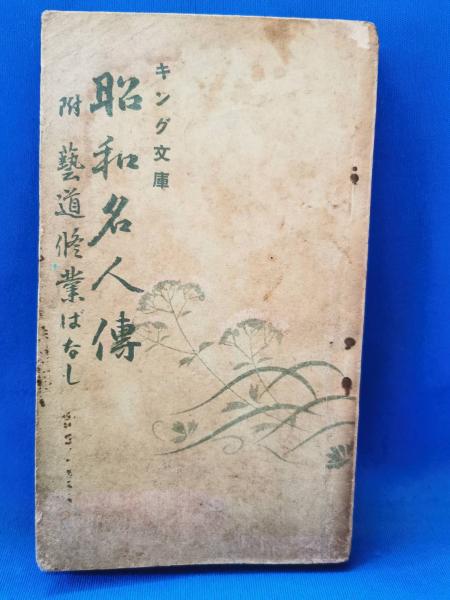 キング文庫
昭和名人傳
附 藝道修業ばなし